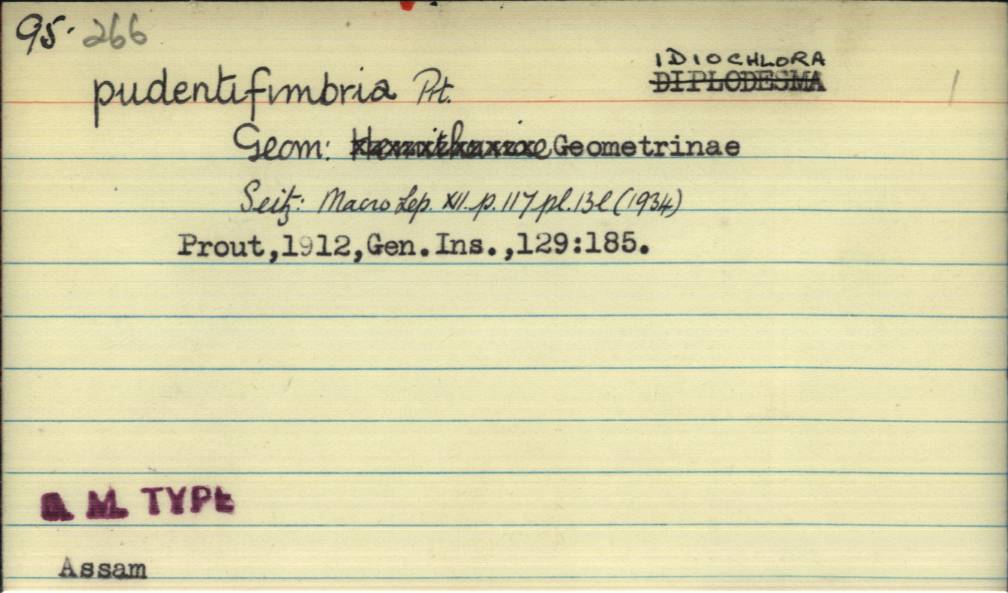 95. 266
IDIOCHLORA
pudentifimbria Prt. DIPLODESMA
Geom: Hemitheinae Geometrinae
Seitz: Macro Lep. XII. p. 117 pl. 13 l (1934)
Prout,1912,Gen.Ins.,129:185.
B. M. TYPE
Assam